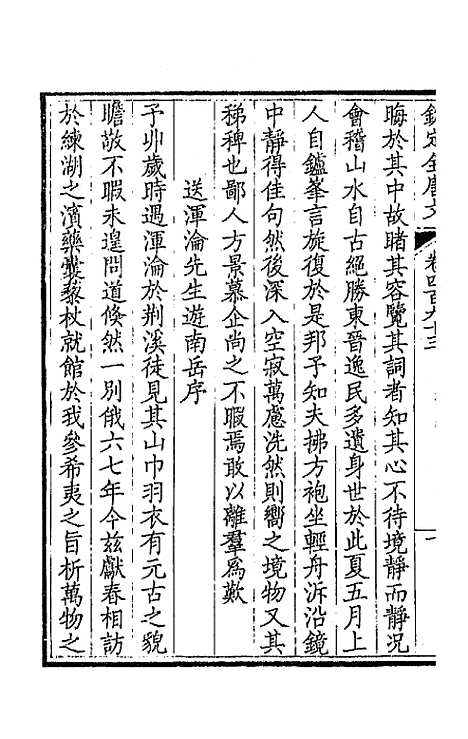 欽定全唐文 卷四百九十三
晦於其中故睹其容覽其詞者知其心不待境靜而靜況
會稽山水自古絕勝東晉逸民多遺身世於此夏五月上
人自鑪峯言旋復於是邦予知夫拂方袍坐輕舟泝沿鏡
中靜得佳句然後深入空寂萬慮洗然則嚮之境物又其
稊稗也鄙人方景慕企尚之不暇焉敢以離羣爲歎
送渾淪先生遊南岳序
予丱歲時遇渾淪於荆溪徒見其山巾羽衣有元古之貌
瞻敬不暇未遑問道倏然一別俄六七年今茲獻春相訪
於練湖之濱藥囊藜杖就館於我參希夷之旨析萬物之